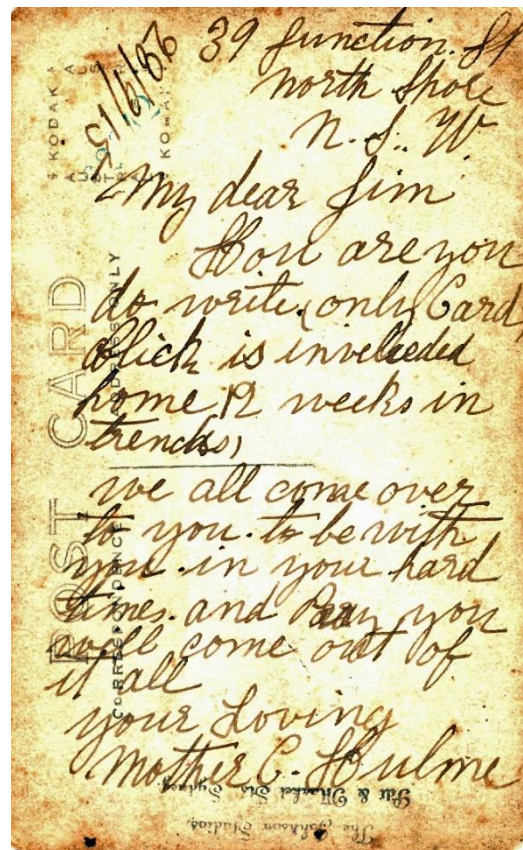 39 Junction. St
North Shore
N. S. W
My dear Jim
How are you
do write. (only Card)
Flick is inveleeded
home, 12 weeks in
trenches)
we all come over
to you. to be with
you. in your hard
times. and Pray you
well come out of
it all
your Loving
Mother C. Hulme
POST CARD
CORRESPONDENCE
ADDRESS ONLY
KODAK
AUSTRAL
The Johnson Studios,
Pitt & Market Sts Sydney.